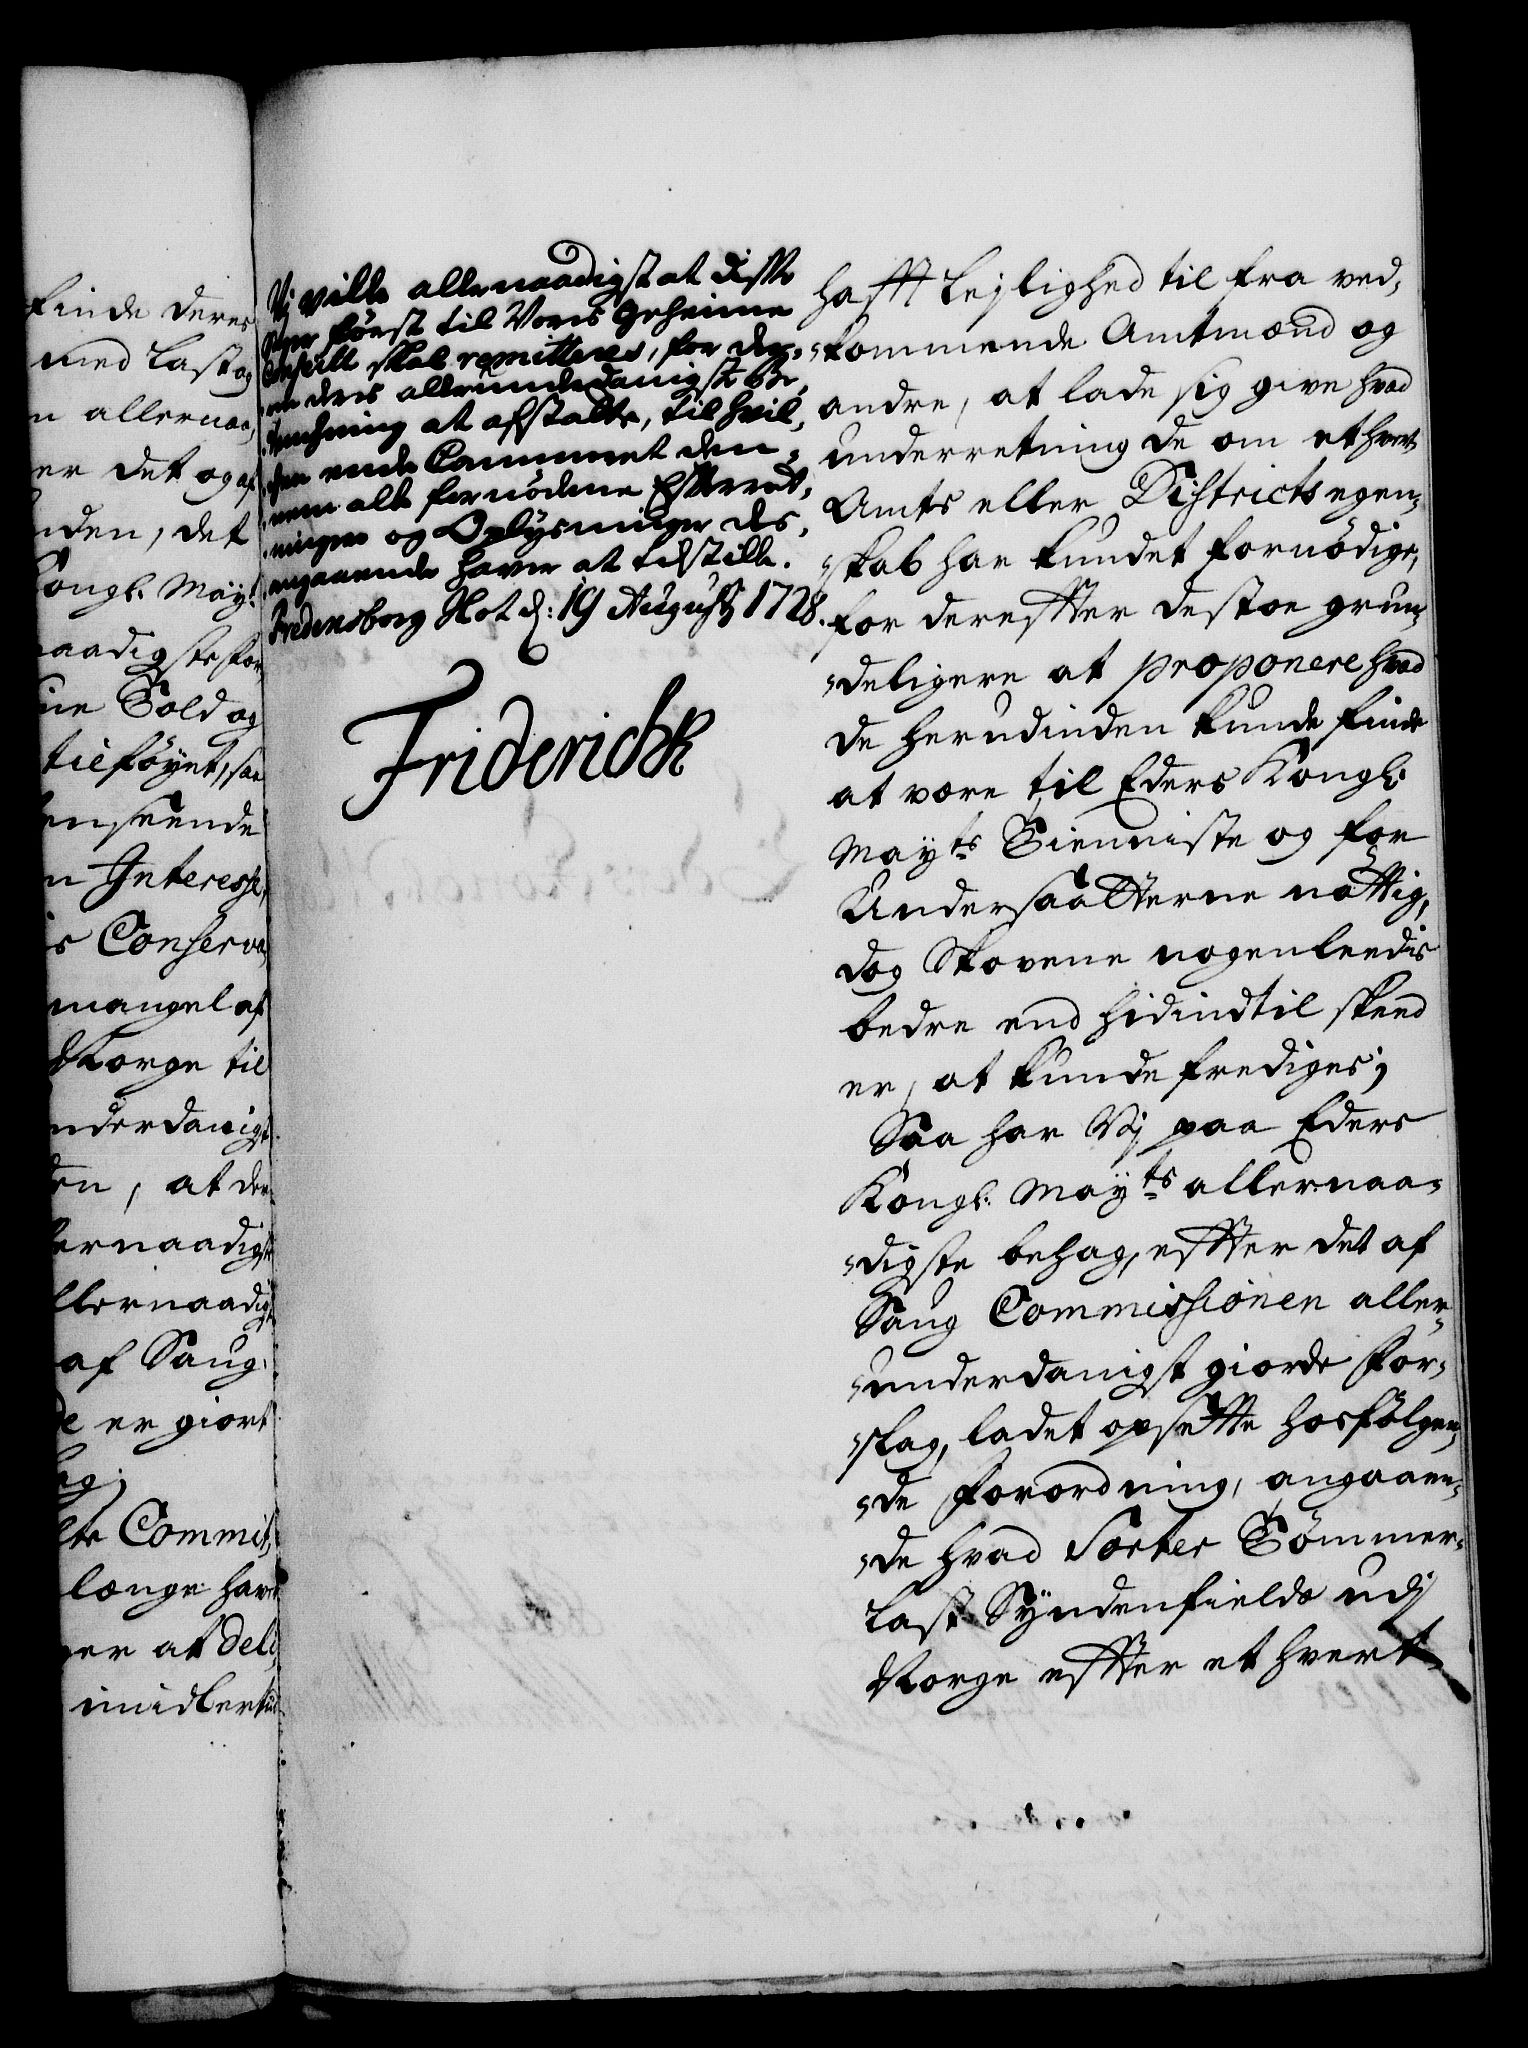 finde deres
med Last og
n allernaa,
er det og af
nden, det
Kongl: May:
naadigste for
ine Told og
tilföyet, saa
henseende
n Interesse,
is Conserva,
mangel af
Norge til
nderdanigst
den, at der,
lernaadigst
llernaadigst
af Saug,
de er giort
lag;
lte Commis,
længe hav
ger at deli,
imidlertiid
Vj ville allernaadigst at disse
först til Vores Geheime
Conseill skal remitteres, for der,
om dets allerunderdanigste be,
tænchning at afstatte, til hvil,
chen ende Cammeret den,
nem alle fornödene Effterret,
ninger og Oplysninger des,
angaaende haver at tilstille.
Fredensborg Slot d: 19 Augusti 1728.
Friderich R
hafft Lejlighed til fra ved,
kommende Amtmænd og
andre, at lade sig give hvad
underretning de om et hvert
Amts eller Districts egen,
skab har kundet fornödige,
for derefter destoe grun,
deligere at proponere hvad
de herudinden kunde finde
at være til Eders Kongl:
Mayts Tienniste og for
Undersaatterne nöttig,
dog Skovene nogenleedis
bedre end hidindtil skeed
er, at kunde frediges;
Saa har Vj paa Eders
Kongl: Mayts allernaa,
digste behag, effter det af
Saug Commissionen aller,
underdanigst giorde For,
slag, ladet opsette hosfölgen,
de Forordning, angaaen,
de hvad Sorter Tömmer,
last Syndenfields udj
Norge effter et hvert